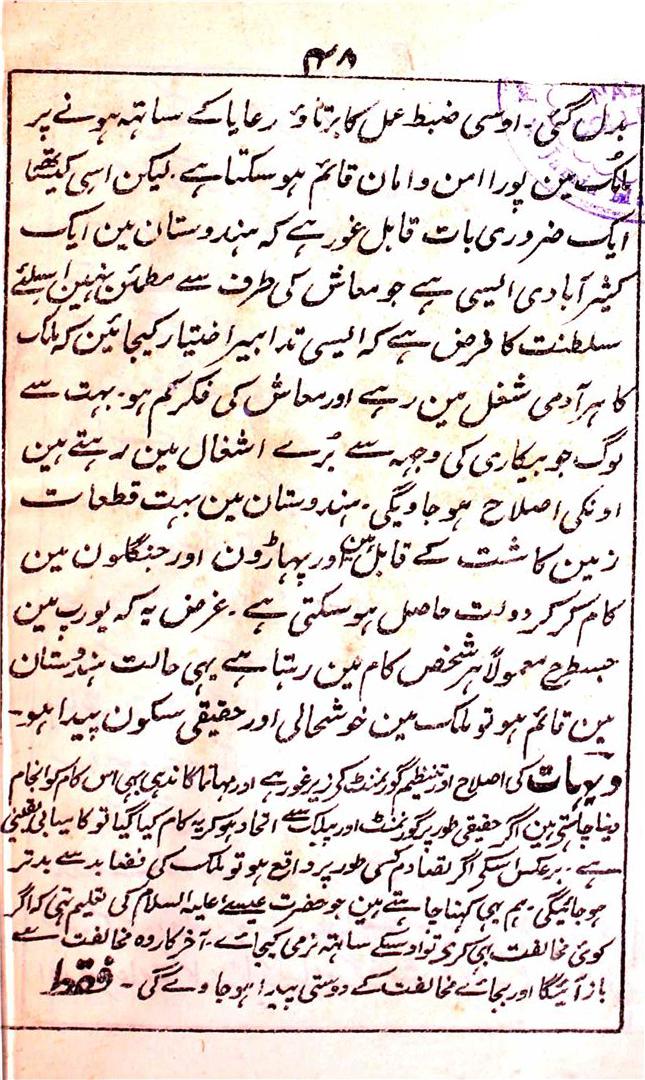 ۴۸
بدل گئی۔ اوسی ضبط عمل کا برتاؤ رعایا کے ساتھہ ہونے پر
ملک مین پورا امن و امان قائم ہو سکتا ہے۔ لیکن اسی کیساتھ
ایک ضروری بات قابل غور ہے کہ ہندوستان مین ایک
کثیر آبادی ایسی ہے جو معاش کی طرف سے مطمئن نہین اسلئے
سلطنت کا فرض ہے کہ ایسی تدابیر اختیار کیجائین کہ ملک
کا ہر آدمی شغل مین رہے اور معاش کی فکر کم ہو۔ بہت سے
لوگ جو بیکاری کی وجہہ سے بُرے اشغال مین رہتے ہین
اونکی اصلاح ہو جاویگی۔ ہندوستان مین بہت قطعات
زمین کاشت کے قابل ہین اور پہاڑون اور جنگلون مین
کام کر کر دولت حاصل ہو سکتی ہے۔ غرض یہ کہ یورپ مین
جسطرح معمولاً ہر شخص کام مین رہتا ہے یہی حالت ہندوستان
مین قائم ہو تو ملک مین خوشحالی اور حقیقی سکون پیدا ہو۔
دیہات کی اصلاح اور تنظیم گورنمنٹ کی زیر غور ہے اور مہاتما گاندہی بہی اس کام کو انجام
دینا چاہتی ہین اگر حقیقی طور پر گورنمنٹ اور پبلک سے اتحاد ہو کر یہ کام کیا گیا تو کامیابی یقینی
ہے۔ برعکس اسکی اگر تصادم کسی طور پر واقع ہو تو ملک کی فضا بد سے بدتر
ہو جائیگی۔ ہم یہی کہنا چاہتے ہین جو حضرت عیسےٰ علیہ السلام کی تعلیم تہی کہ اگر
کوئی مخالفت بہی کری تو اوسکے ساتہہ نرمی کیجاے۔ آخر کار وہ مخالفت سے
باز آئیگا اور بجاے مخالفت کے دوستی پیدا ہو جاوے گی۔ فقط